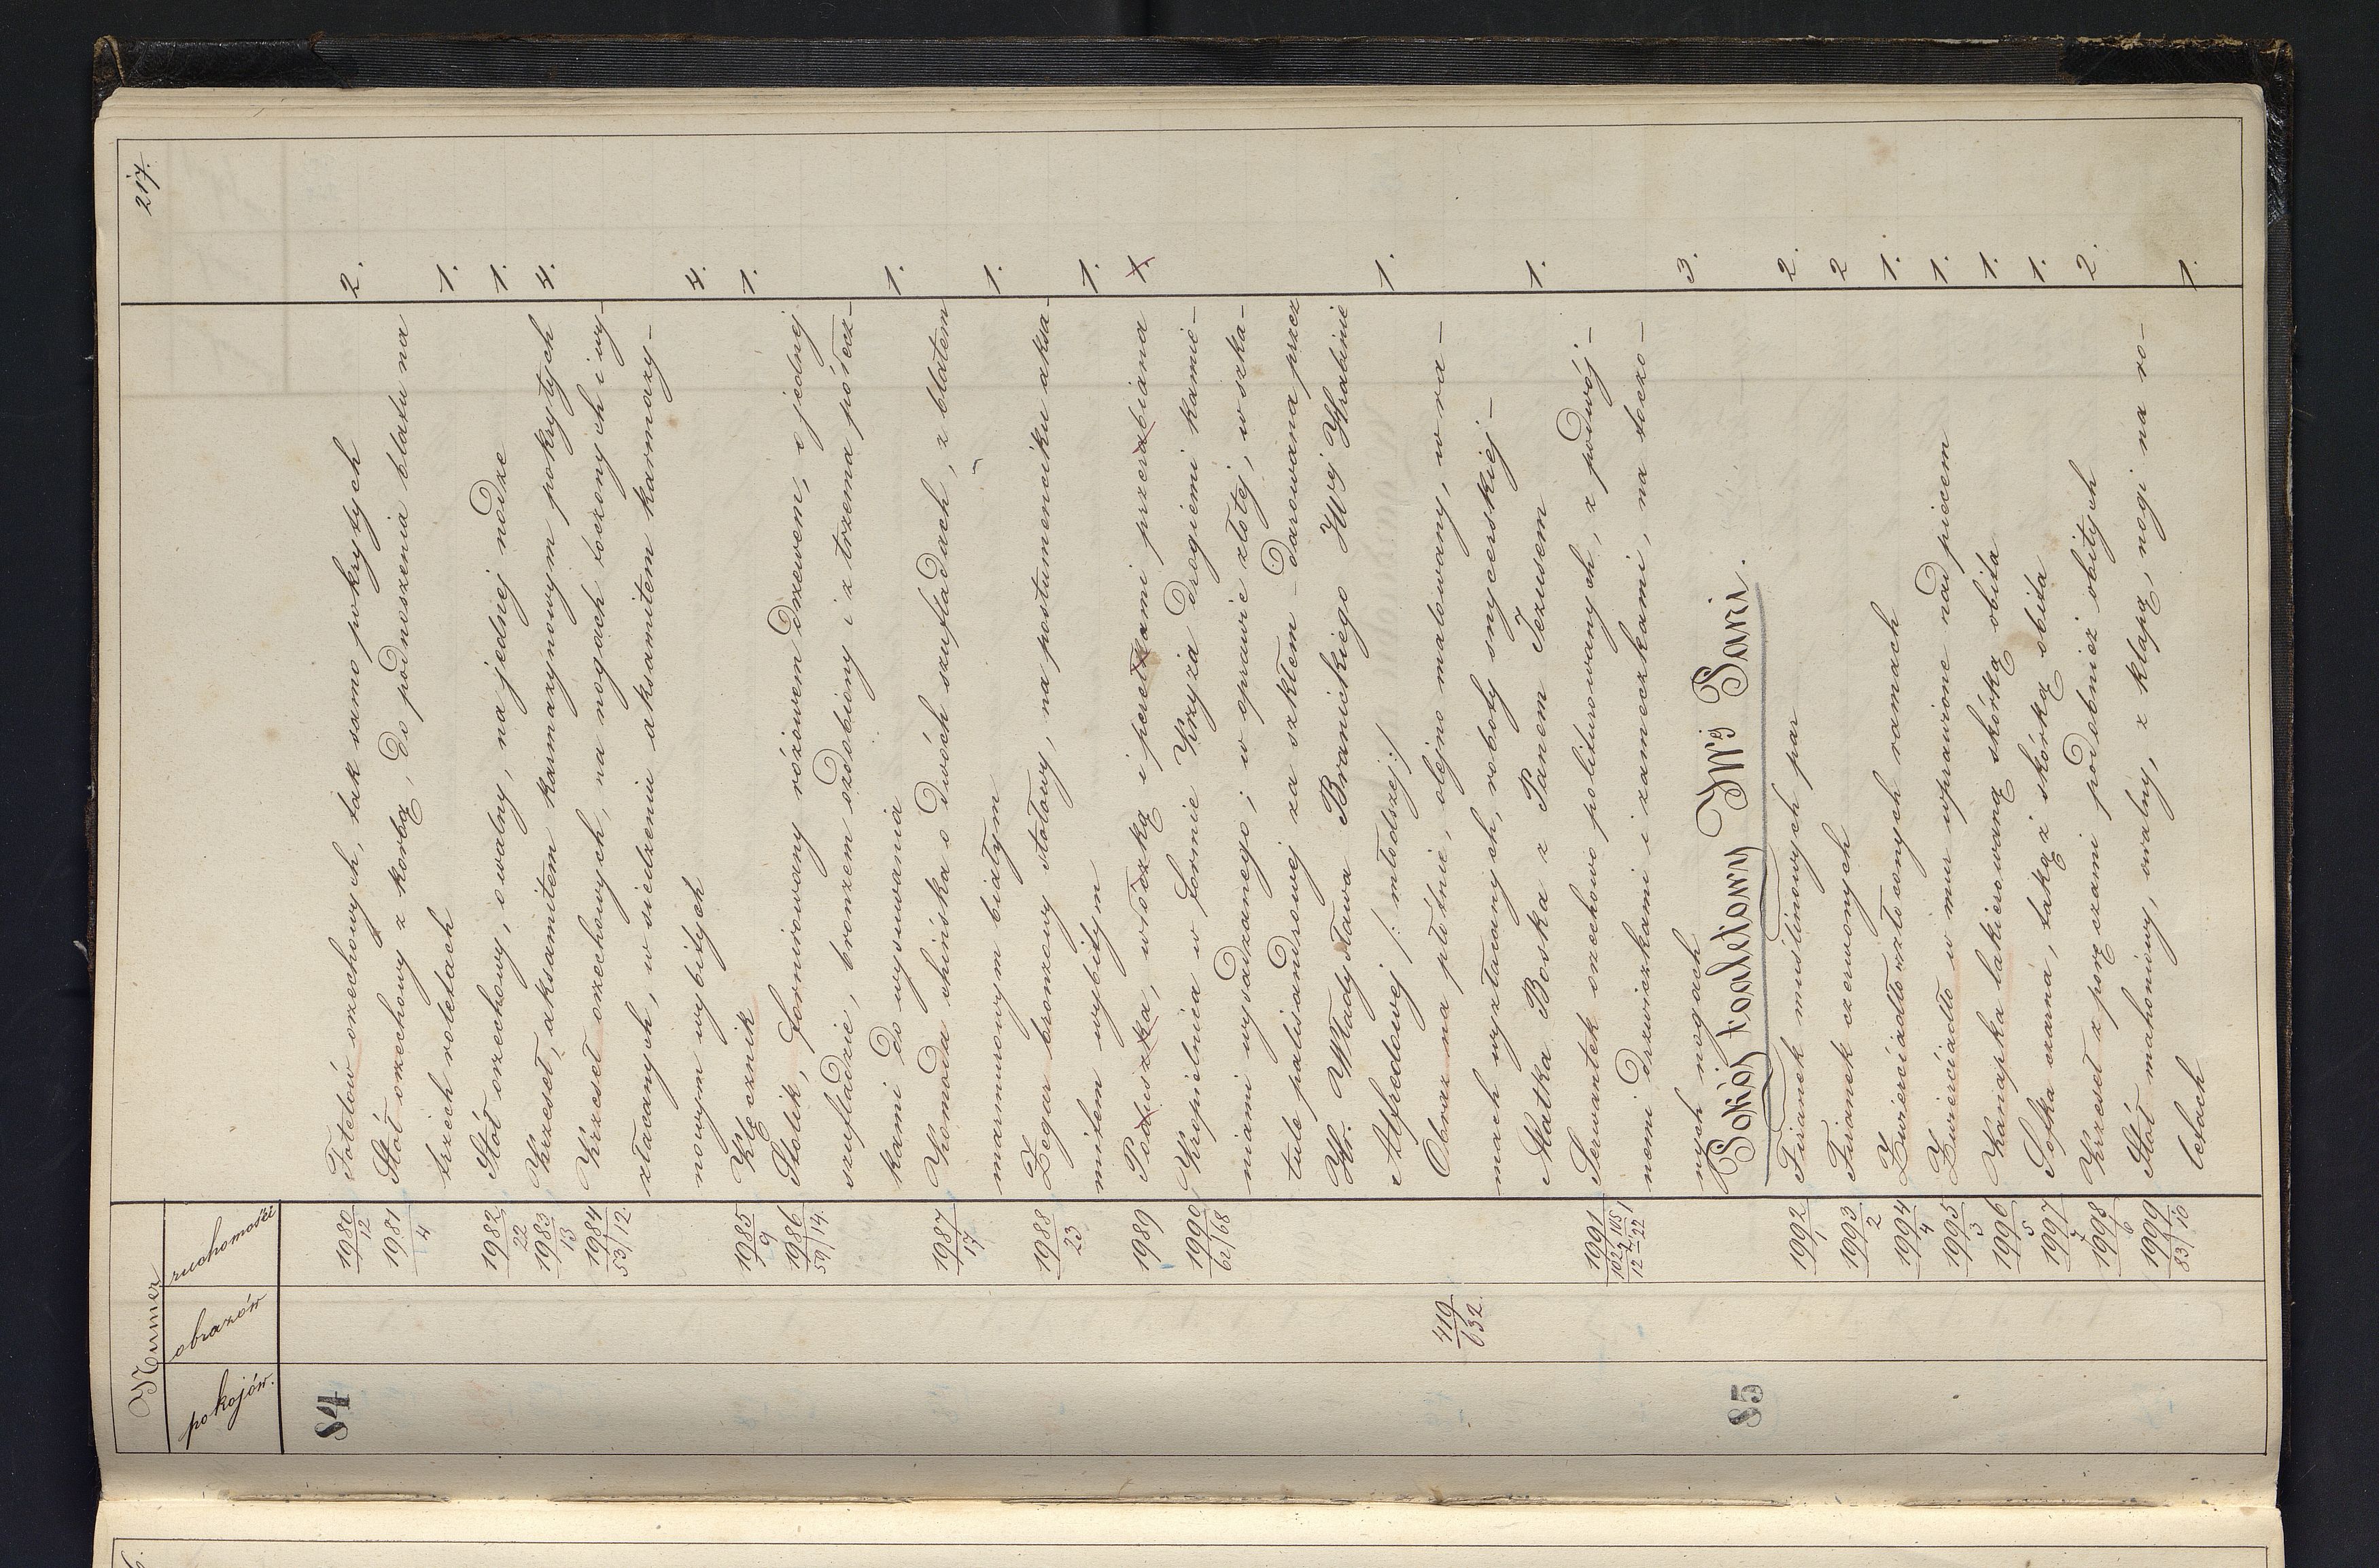 217.
Numer
pokojów. obrazów ruchomości
84 1980/12 Fotelów orzechowych, tak samo pokrytych 2.
1981/4 Stół orzechowy z korbą, do podnoszenia blatu na
trzech roletach 1.
1982/22 Stół orzechowy, owalny, na jednej nodze 1.
1983/13 Krzeseł, aksamitem karmazynowym pokrytych 4.
1984 53/12. Krzeseł orzechowych, na nogach toczonych i wy-
złacanych, w siedzeniu aksamitem karmazy-
nowym wybitych 4.
1985/9 Klęcznik 1.
1986 59/14. Stolik, fornirowany różowem drzewem, o jednej
szufladzie, bronzem ozdobiony i z trzema półecz-
kami do wysuwania 1.
1987/17 Komoda chińska o dwóch szufladach, z blatem
marmurowym białym 1.
1988/23 Zegar bronzowy stołowy, na postumenciku aksa-
mitem wybitym 1.
1989 Poduszka, włóczką i perełkami przerabiana 1
1990 62/68 Kropielnica w formie krzyża drogiemi kamie-
niami wysadzanego; w oprawie złotej, w szka-
tule palisandrowej za szkłem – darowana przez
Hr. Władysława Branickiego JWej Hrabinie
Alfredowej /: młodszej :/ 1.
419/632. Obraz na płótnie, olejno malowany, w ra-
mach wyzłacanych, roboty snycerskiej –
Matka Boska z Panem Jezusem 1.
1991 102 2 105 1 / 12 – 22 Serwantek orzechowo politurowanych, z podwój-
nemi drzwiczkami i zameczkami, na toczo-
nych nogach 3.
85 Pokój toaletowy JWej Pani.
1992/1 Firanek muślinowych par 2.
1993/2 Firanek czerwonych 2
1994/4 Zwierciadło w złoconych ramach 1.
1995/3 Zwierciadło w mur wprawione nad piecem 1.
1996/5 Kanapka lakierowaną skórką obita 1.
1997/7 Sofka czarna, takąż skórką obita 1.
1998/6 Krzeseł z poręczami podobnież obitych 2.
1999 83/10 Stół mahoniowy, owalny, z klapą, nogi na ro-
letach 1.